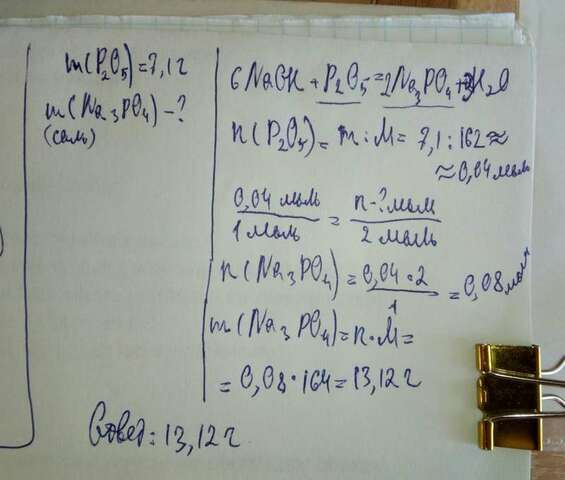 m(P₂O₅)=7,1г
m(Na₃PO₄)-?
(соль)
6NaOH + P₂O₅=2Na₃PO₄+3H₂O
n(P₂O₅)= m:M= 7,1:162≈
≈0,04моль
0,04 моль / 1 моль = n-?моль / 2 моль
n(Na₃PO₄)=0,04·2 / 1 =0,08моль
m(Na₃PO₄)=n·M=
=0,08·164=13,12г
Ответ:13,12г